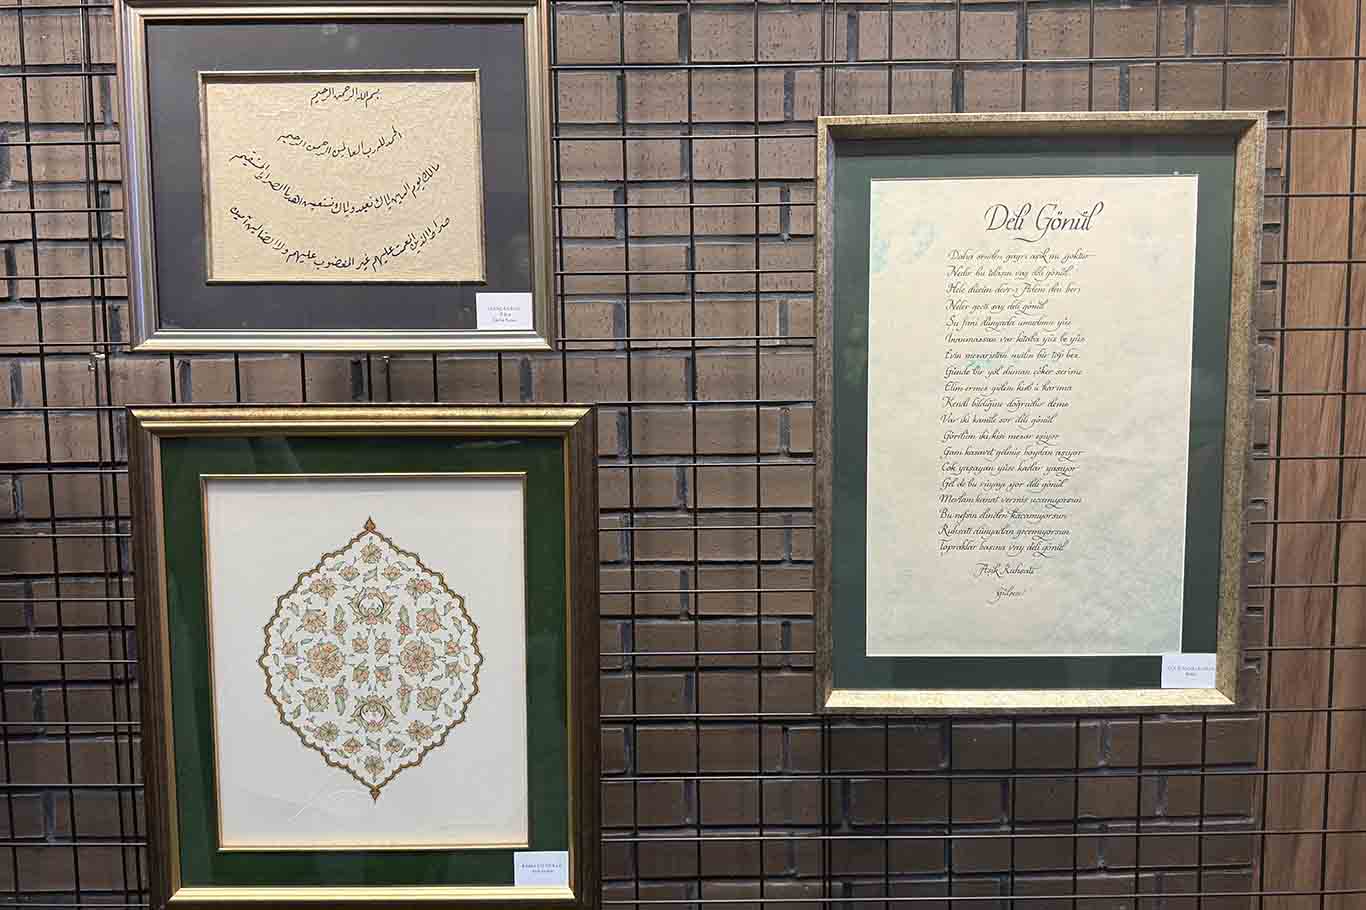 بسم الله الرحمن الرحيم
الحمد لله رب العالمين الرحمن الرحيم
مالك يوم الدين اياك نعبد و اياك نستعين اهدنا الصراط المستقيم
صراط الذين انعمت عليهم غير المغضوب عليهم ولا الضالين آمين
Deli Gönül
Daha senden gayri aşık mı yoktur
Nedir bu telaşın vay deli gönül
Hele düşün devr-i Adem'den beri
Neler geçti say deli gönül
Şu fani dünyada umudunu yüz
İnanmassan var kitaba yüz be yüz
Evin mezaristan malın bir top bez
Günde bir yol duman çöker serime
Elim ermez gidem kisb ü karıma
Kendi bildiğine doğrudur deme
Var iki kamile sor deli gönül
Gördüm iki kişi mezar eşiyor
Gam kasavet gelmiş boydan aşıyor
Çok yaşayan yüze kadar yaşıyor
Gel de bu rüyayı yor deli gönül
Mevlam kanat vermiş uçamıyorsun
Bu nefsin elinden kaçamıyorsun
Ruhsati dünyadan geçemiyorsun
Topraklar başına vay deli gönül
Aşık Ruhsati